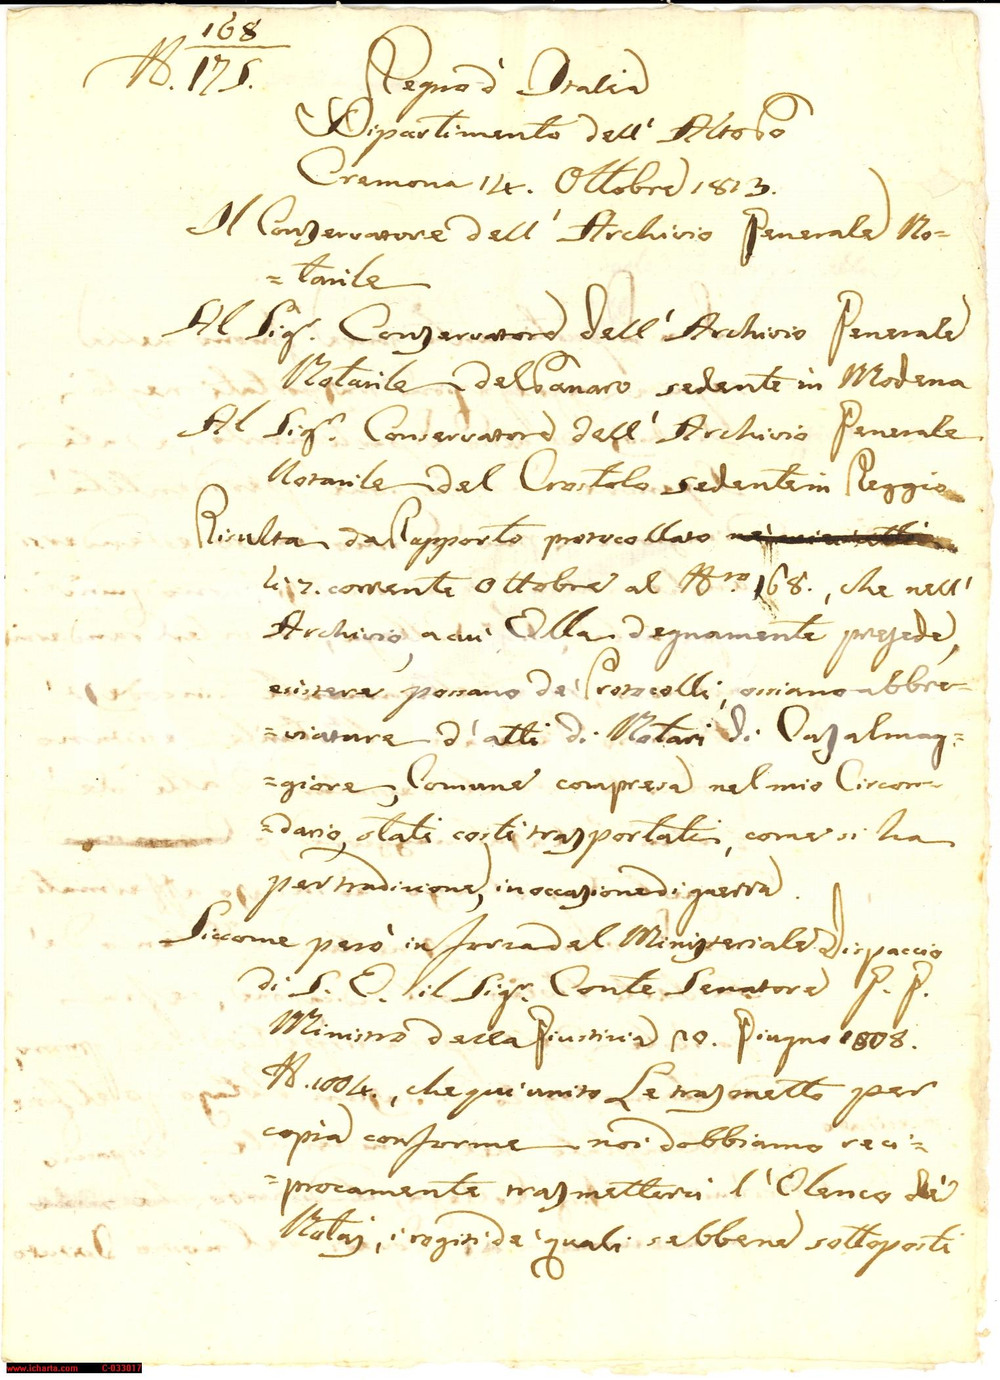 168
N. 171.
Regno d' Italia
Dipartimento dell' Alto Po
Cremona 14. Ottobre 1813.
Il Conservatore dell' Archivio Generale No=
=tarile
Al Sigr. Conservatore dell' Archivio Generale
Notarile del Panaro sedente in Modena
Al Sigr. Conservatore dell' Archivio Generale
Notarile del Crostolo sedente in Reggio
Risulta da Rapporto protocollato
li 7. corrente Ottobre al Nro. 168., che nell'
Archivio, a cui Ella degnamente presede,
esistere possano de' Protocolli, ossiano abbre=
=viature d' atti di Notari di Casalmag=
=giore, Comune compresa nel mio Circon=
=dario, stati costì trasportati, come si ha
per tradizione, in occasione di guerra.
Siccome però in forza del Ministeriale Dispaccio
di S. E. il Sigr. Conte Senatore G. G.
Ministro della Giustizia 20. Giugno 1808.
N. 1004., che qui unito Le trasmetto per
copia conforme noi dobbiamo reci=
=procamente trasmetterci l' Elenco de'
Notaj, i rogiti de' quali sebbene sottoposti
www.icharta.com C-033017